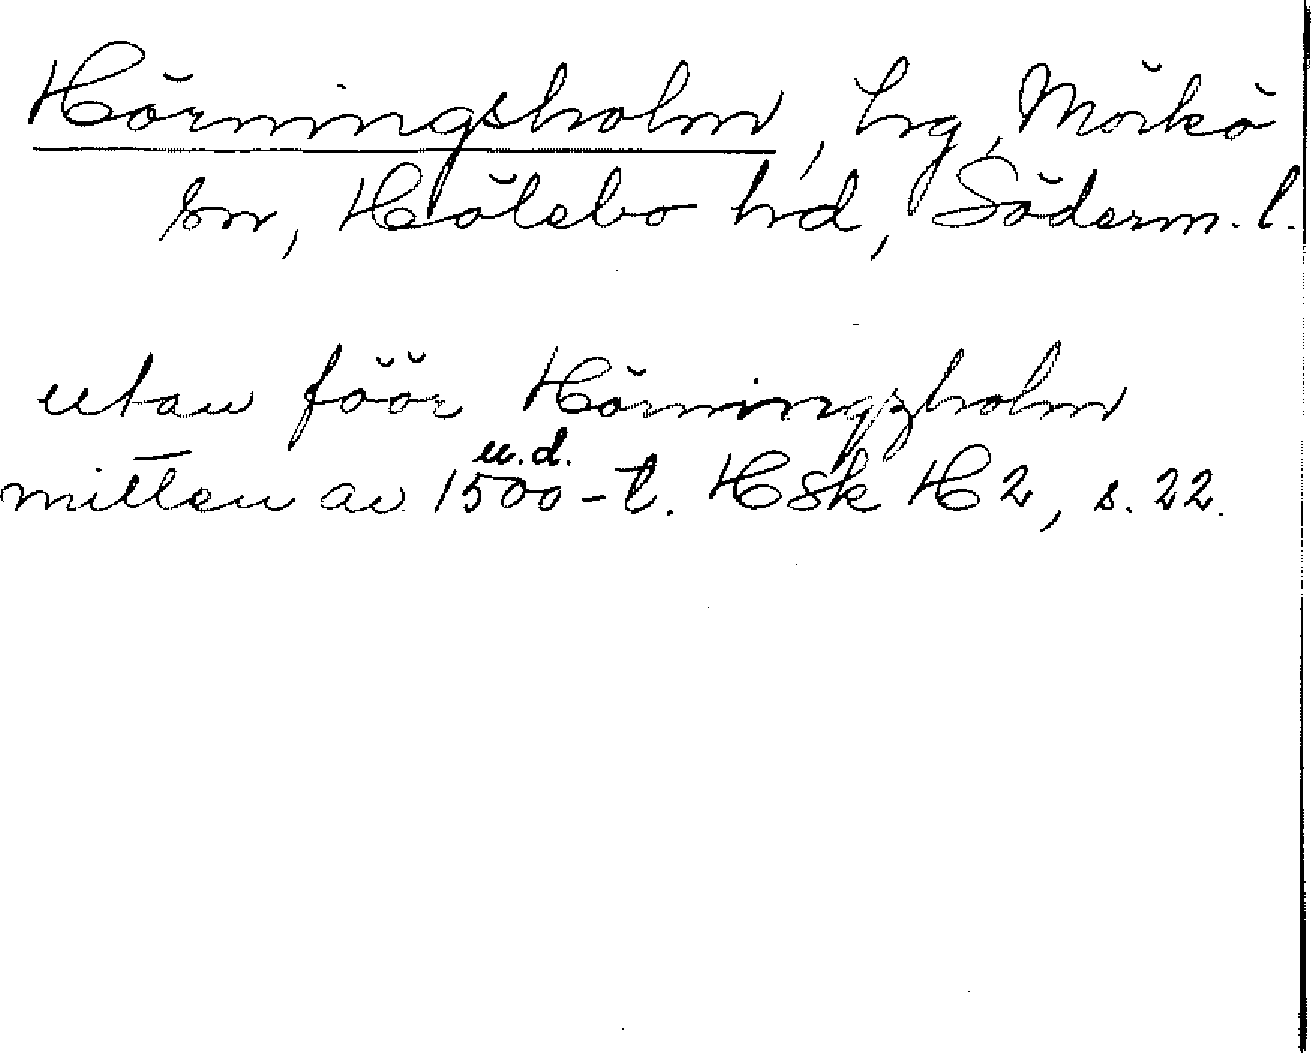 Hörningsholm, hrg, Mörkö
sn, Hölebo hrd, Söderm. l.
utan föör Hörningzholm
u.d.
mitten av 1500-t. HSk H2, s. 22.